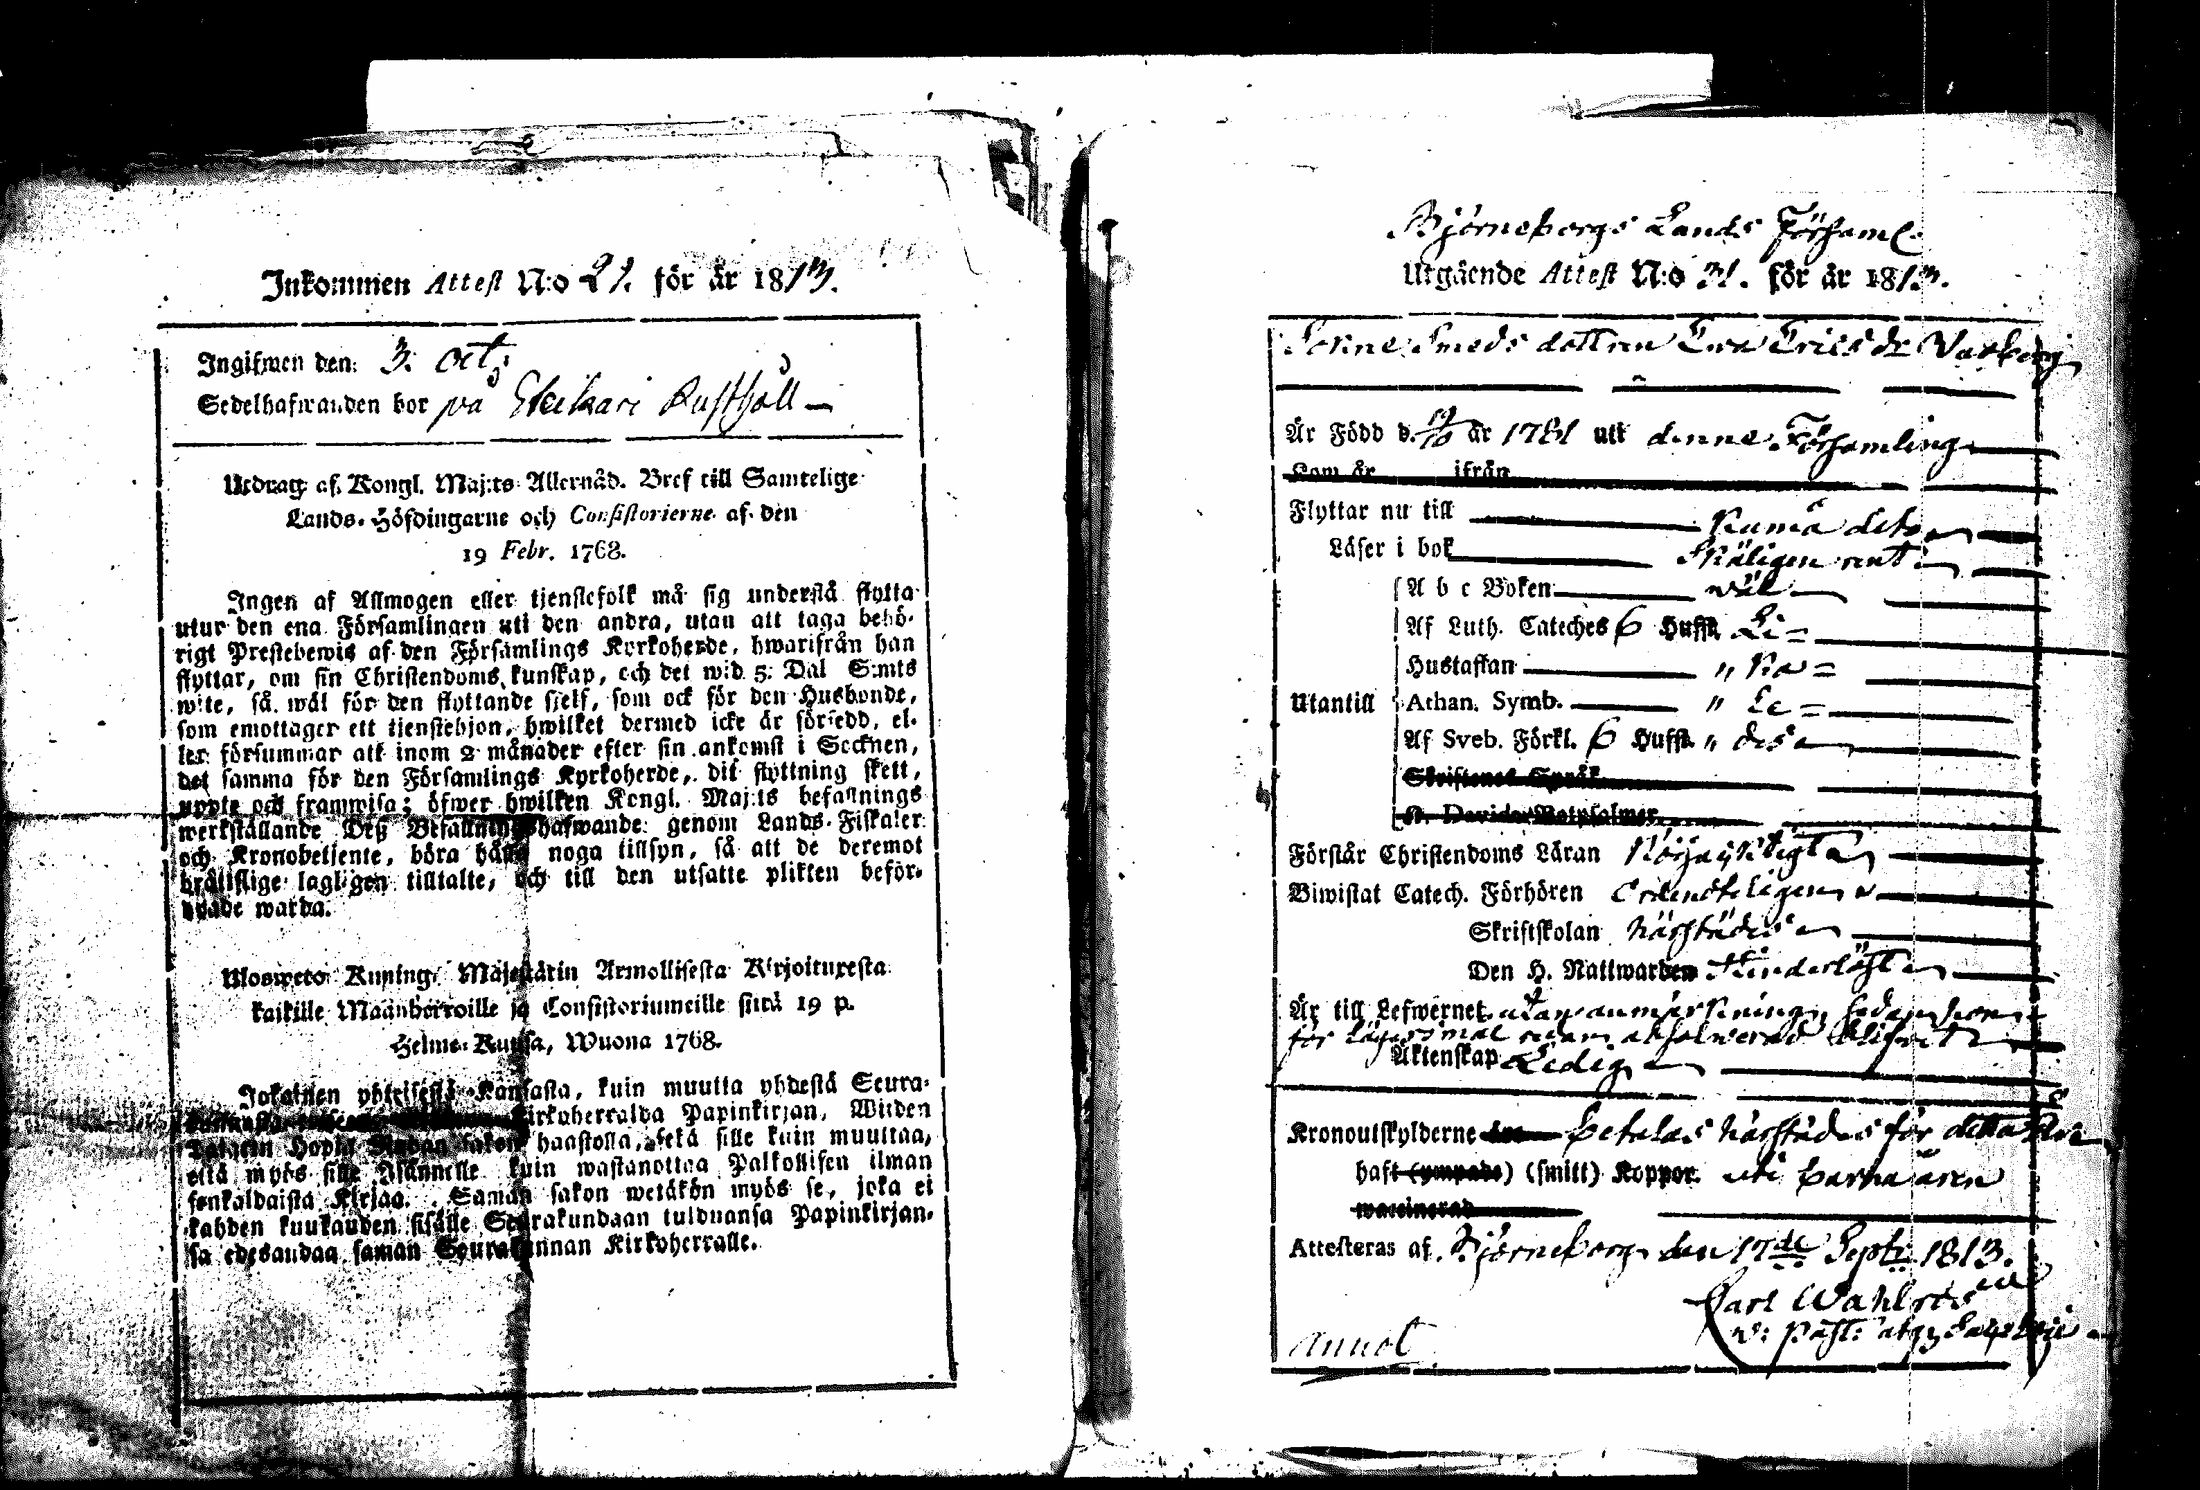 Inkommen Attest N:o 21. för år 1813.
Ingifwen den: 3. oct.
Sedelhafwanden bor på Rusthåll
Utdrag af Kongl. Maj:ts Allernåd. Bref till Samtelige
Lands-Höfdingarne och Consistorierne af den
19 Febr. 1768.
Ingen af Allmogen eller tjenstefolk må sig understå flytta
utur den ena Församlingen uti den andra, utan att taga behö-
rigt Prestebewis af den Församlings Kyrkoherde, hwarifrån han
flyttar, om sin Christendoms kunskap, och det wid 5 Dal S:mts
wite, så wäl för den flyttande sjelf, som ock för den Husbonde,
som emottager ett tjenstehjon, hwilket dermed icke är försedd, el-
ler försummar att inom 2 månader efter sin ankomst i Socknen,
det samma för den Församlings Kyrkoherde, dit flyttning skett,
uppte och framwisa; öfwer hwilken Kongl. Maj:ts befallnings
werkställande Deß Befallningshafwande genom Lands-Fiskaler
och Kronobetjente, böra hålla noga tillsyn, så att de deremot
brätslige lagligen tilltalte, och till den utsatte plikten beför-
drade warda.
Ulosweto Kuning. Majestätin Armollisesta Kirjoituxesta
kaikille Maanherroille ja Consistoriumeille siitä 19 p.
Helme-Kuusa, Wuona 1768.
Jokainen yhteisestä Kansasta, kuin muutta yhdestä Seura-
Kirkoherralda Papinkirjan, Wiiden
Talarin Hopia Rahan sakon haastolla, sekä sille kuin muuttaa,
että myös sille Isännelle kuin wastanottaa Palkollisen ilman
senkaldaista Kirjaa. Saman sakon wetäkön myös se, joka ei
kahden kuukauden sisälle Seurakundaan tulduansa Papinkirjan-
sa edesandaa saman Seurakunnan Kirkoherralle.
Björneborgs Lands Församl.
Utgående Attest N:o 31. för år 1813.
Smeds dottren Ewa Ericsdr Warberg
Är Född d. 19/10 år 1781 uti denne Församling
Kom år ifrån
Flyttar nu till Raumå
Läser i bok Skäligen rent
A b c Boken wäl
Af Luth. Cateches 6 Hufst. Li=
Hustaflan " Ka=
Utantill Athan. Symb. " Le=
Af Sveb. Förkl. 6 Hufst. " des
Skriftenes Språk
K. Davids Botpsalmer
Förstår Christendoms Läran
Biwistat Catech. Förhören Ordenteligen
Skriftskolan härstädes
Den H. Nattwarden
Är till Lefwernet utan anmärkning, sedan hon
för lägersmål absolwerad blifwit
Äktenskap Ledig
Kronoutskylderne betalas härstädes för detta År
haft (ympade) (smitt) Koppor uti barnaåren
waccinerad
Attesteras af Björneborg den 17de Sept: 1813.
Carl Wahlroos
annot